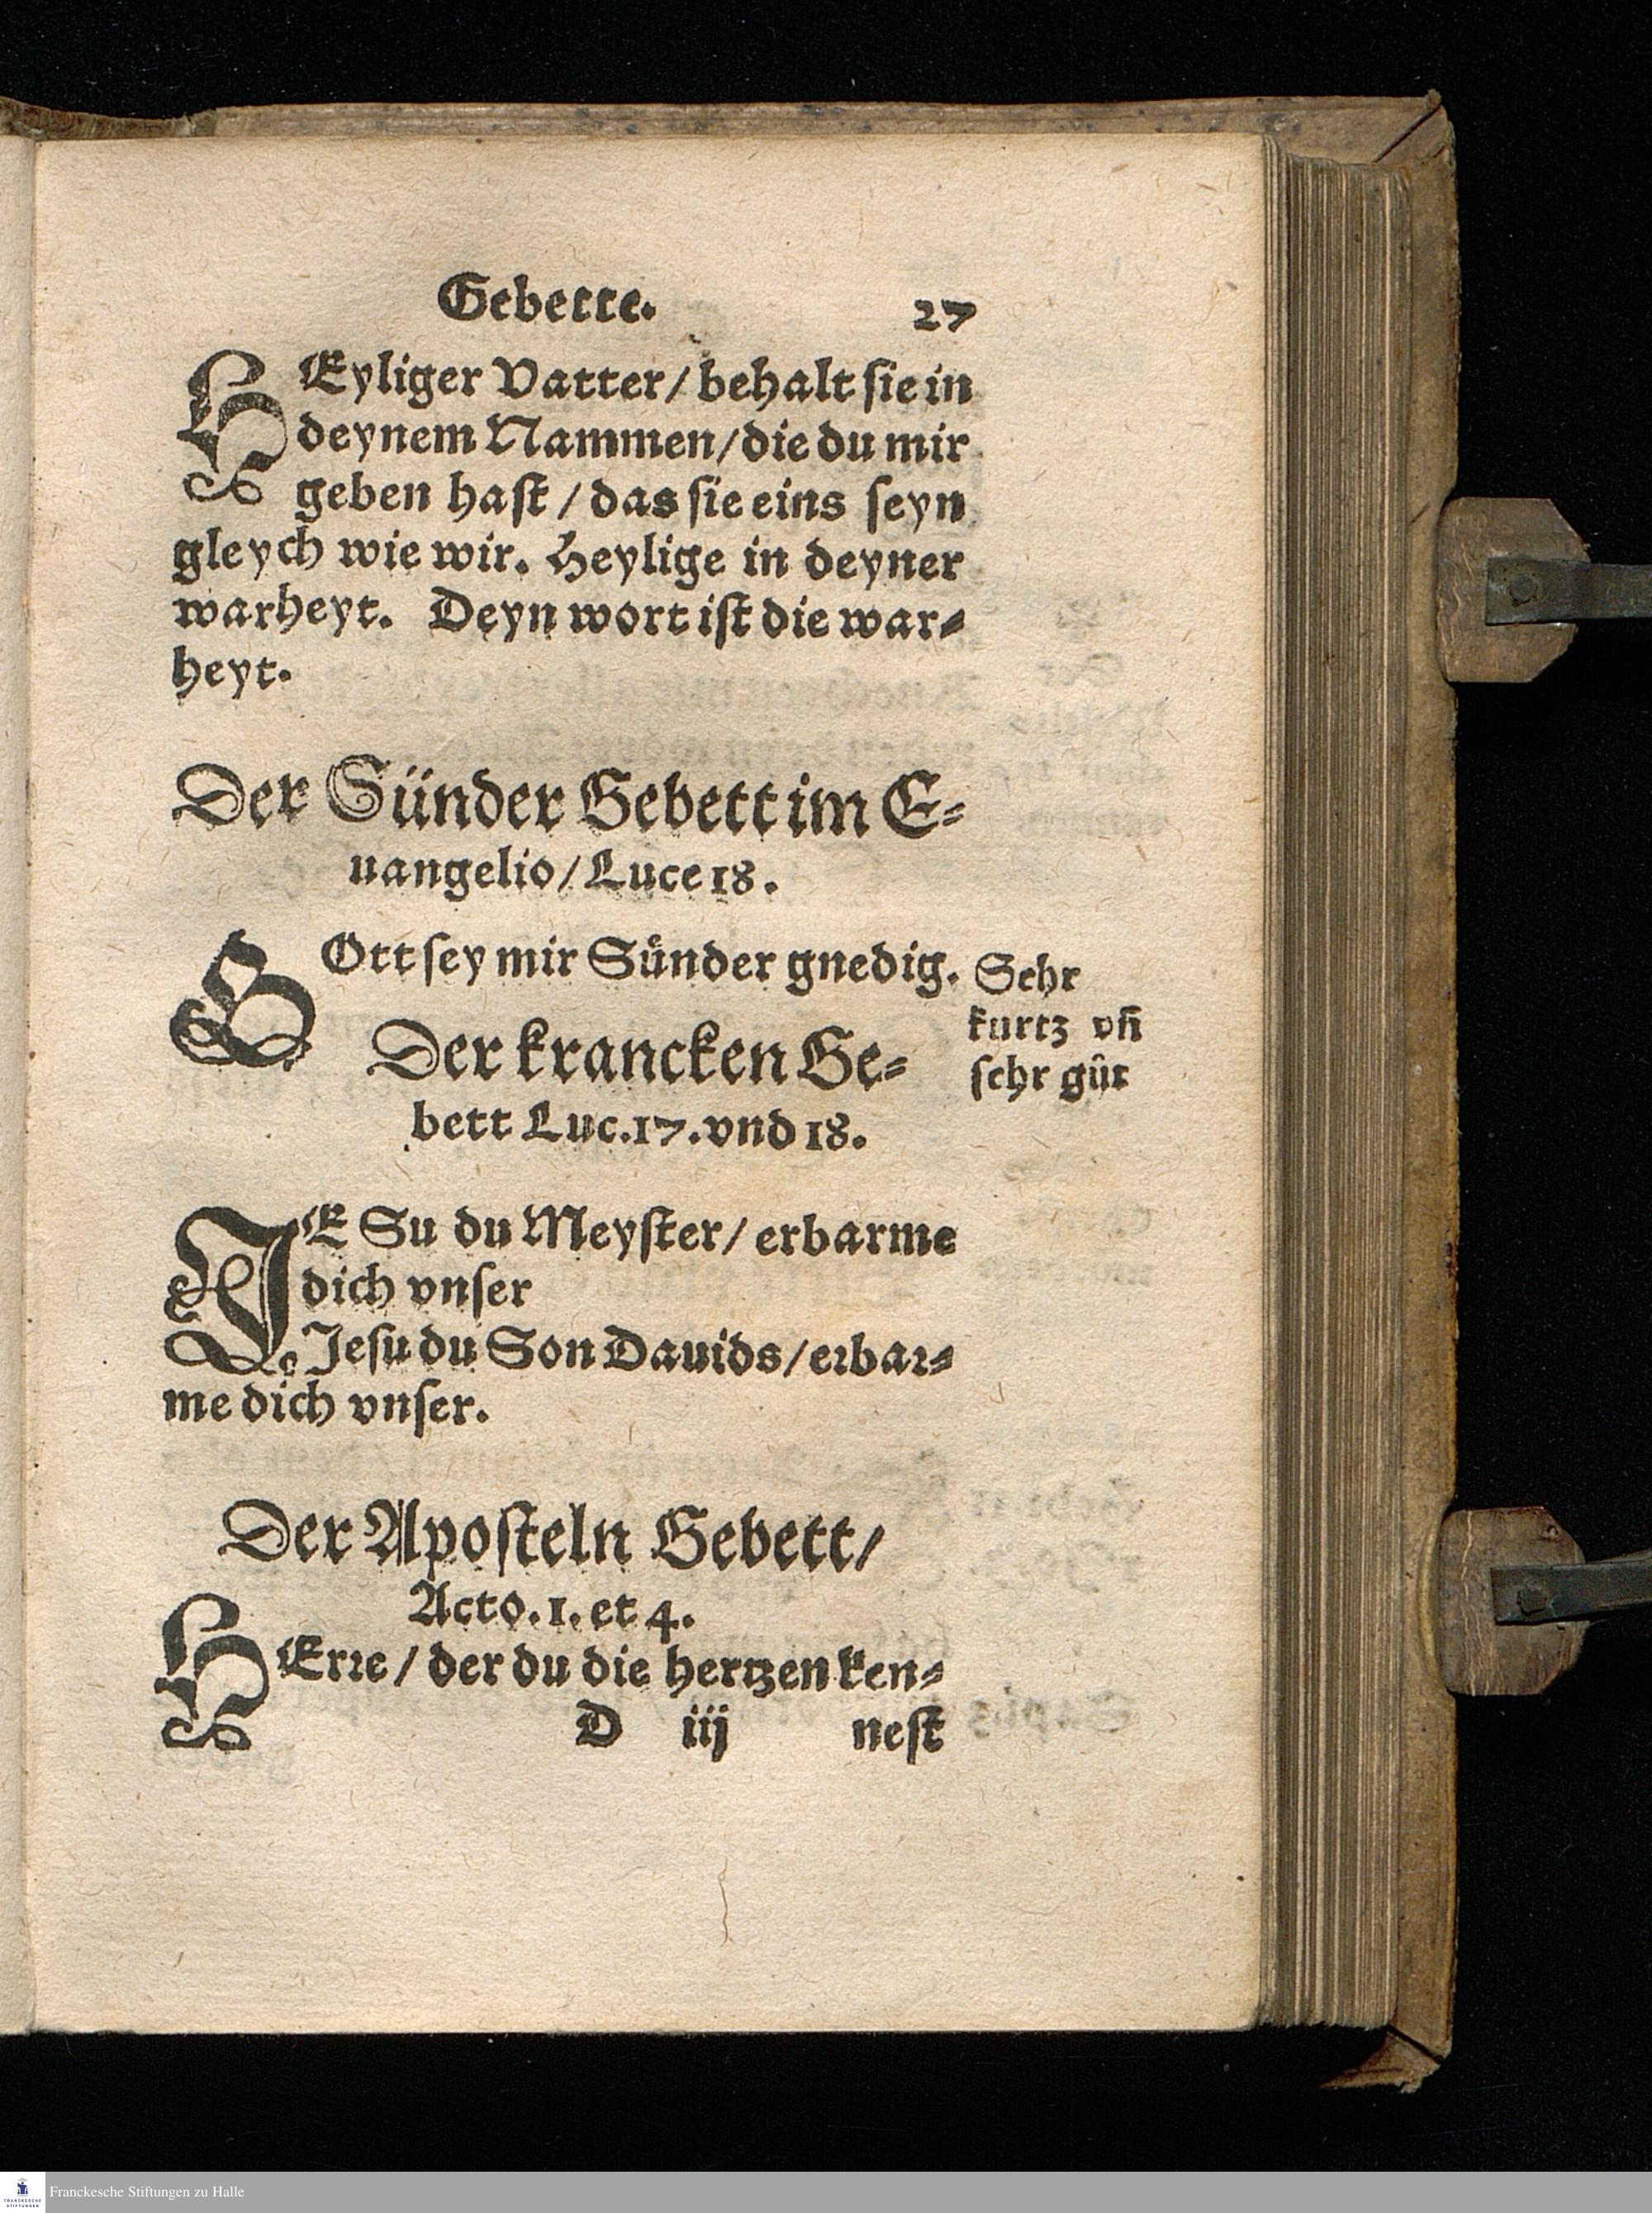 Gebette. 27
HEyliger Vatter / behalt sie in
deynem Nammen / die du mir
geben hast / das sie eins seyn
gleych wie wir. Heylige in deyner
warheyt. Deyn wort ist die war⸗
heyt.
Der Sünder Gebett im E⸗
uangelio / Luce 18.
GOtt sey mir Sůnder gnedig.
Sehr
kurtz vn̄
sehr gůt
Der krancken Ge⸗
bett Luc. 17. vnd 18.
JESu du Meyster / erbarme
dich vnser
Jesu du Son Dauids / erbar⸗
me dich vnser.
Der Aposteln Gebett /
Acto. 1. et 4.
HErre / der du die hertzen ken⸗
D iij nest
Franckesche Stiftungen zu Halle
FRANCKESCHE
STIFTUNGEN